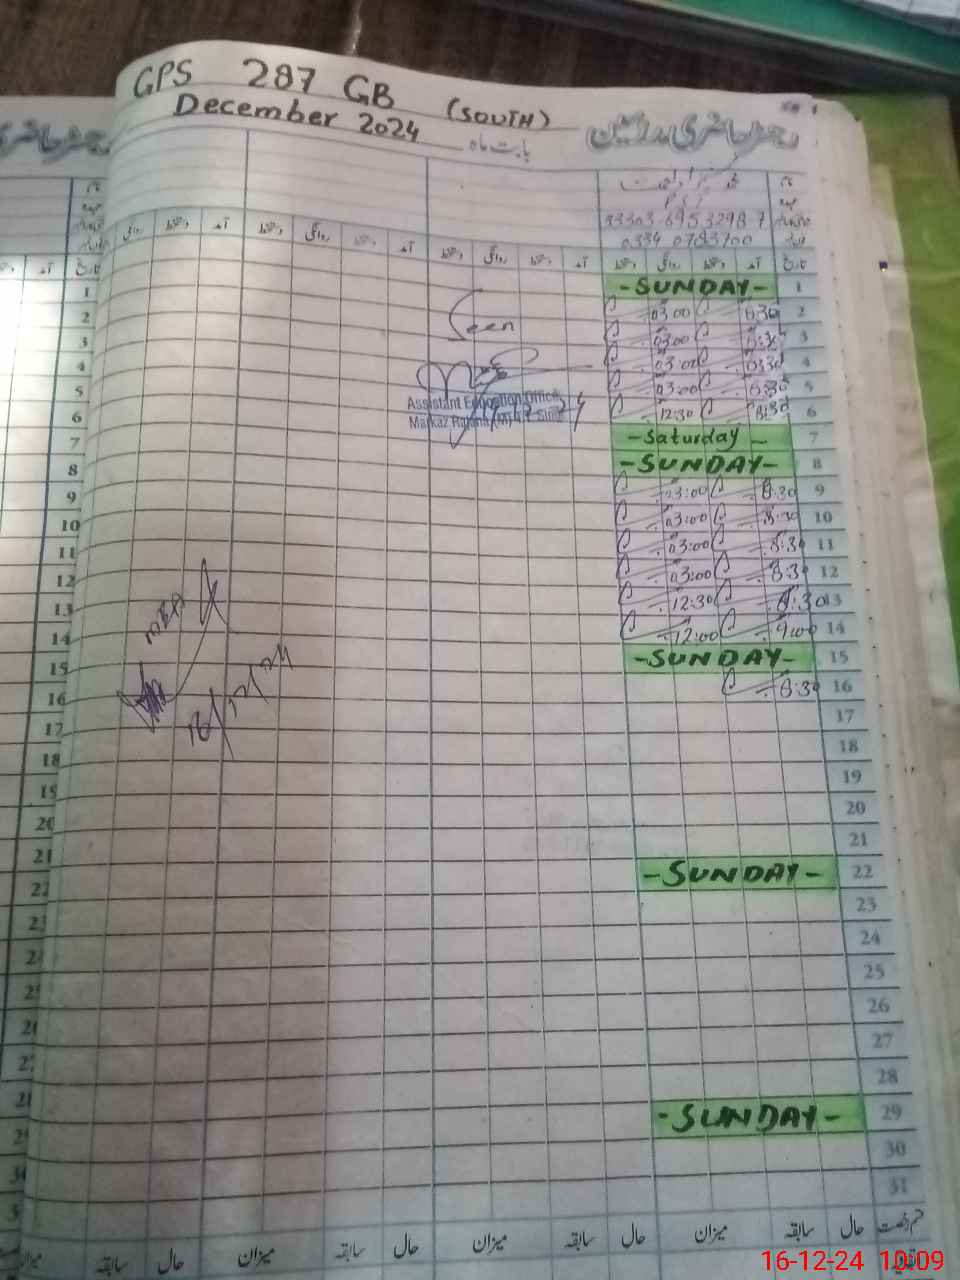 GPS 287 GB (SOUTH)
December 2024
بابت ماہ
رجسٹر حاضری مدرسین
نام
عہدہ
PST
0334 0783700
تاریخ آمد دستخط روانگی دستخط آمد دستخط روانگی دستخط آمد دستخط روانگی دستخط
1 -SUNDAY-
2 8:30 03:00
3 8:30 03:00
4 8:30 03:00
5 8:30 03:00
6 8:30 12:30
7 -Saturday-
8 -SUNDAY-
9 8:30 03:00
10 8:30 03:00
11 8:30 03:00
12 8:30 03:00
13 8:30 12:30
14 9:00 12:00
15 -SUNDAY-
16 8:30
17
18
19
20
21
22 -SUNDAY-
23
24
25
26
27
28
29 -SUNDAY-
30
31
Seen
Assistant Education Officer
Markaz Rajana (M) T.T Singh
MEA
16/12/24
قسم رخصت حال سابقہ میزان حال سابقہ میزان حال سابقہ میزان حال سابقہ
16-12-24 10:09